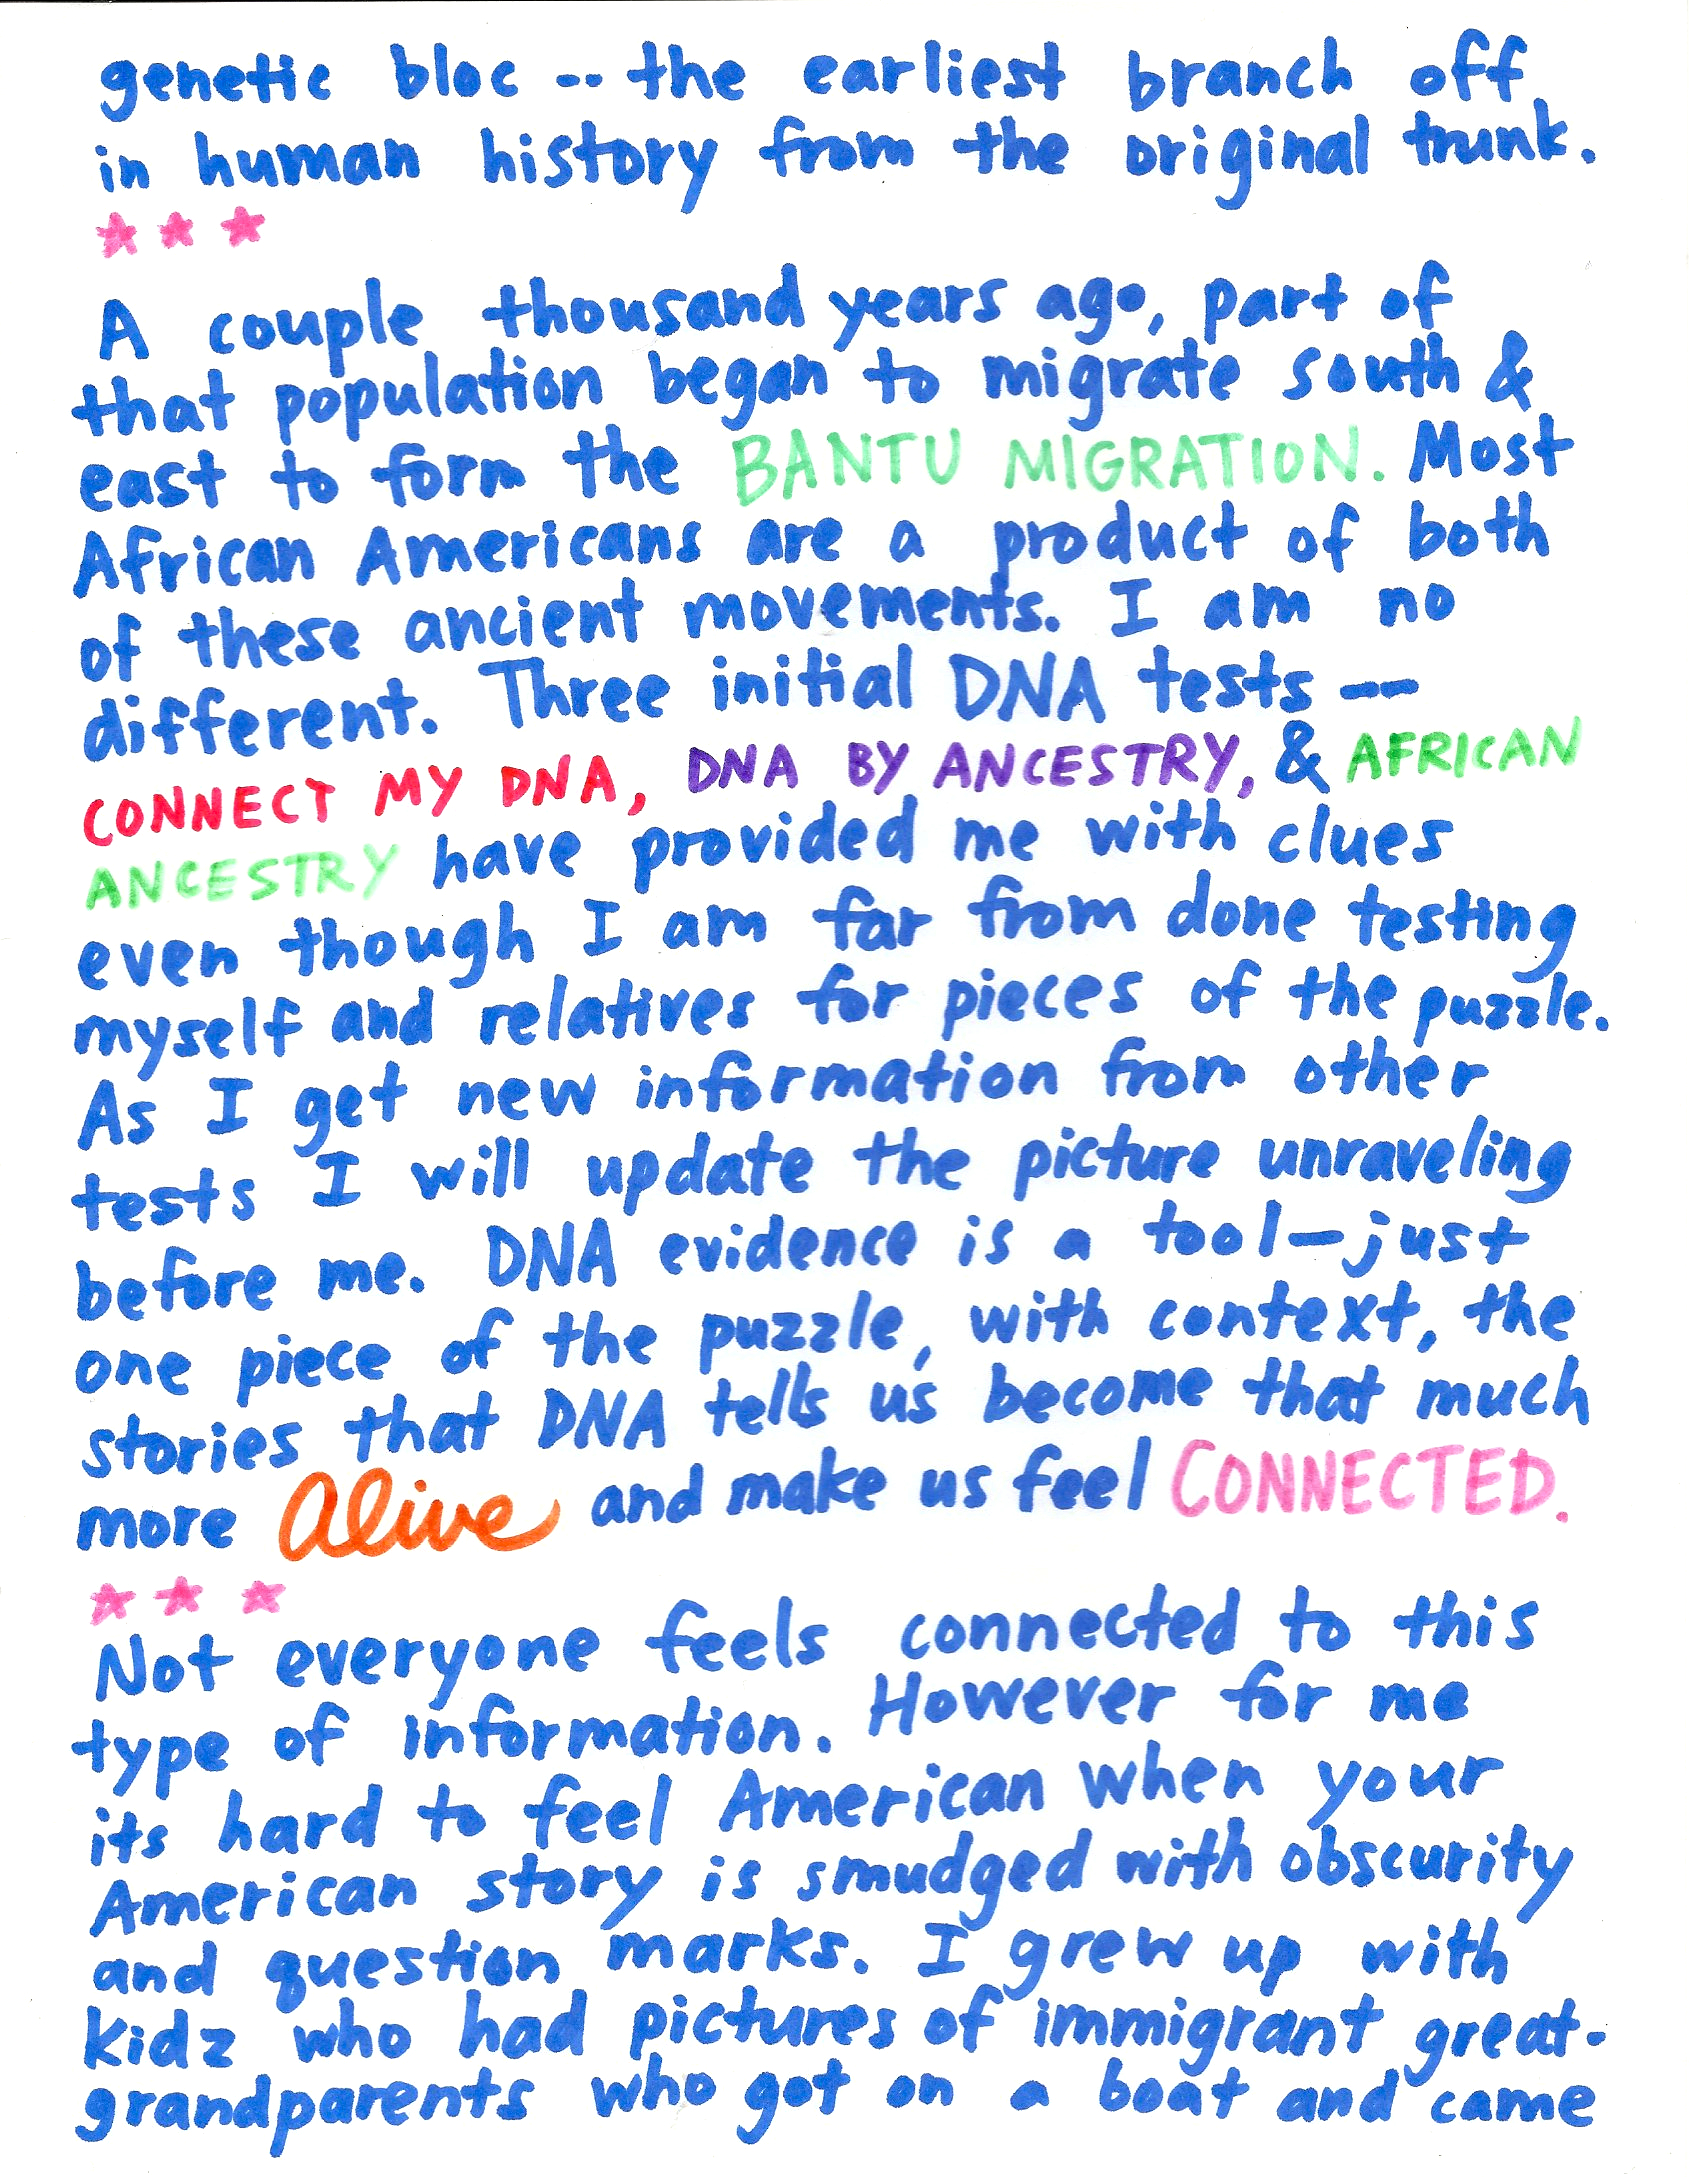 genetic bloc -- the earliest branch off
in human history from the original trunk.
A couple thousand years ago, part of
that population began to migrate south &
east to form the BANTU MIGRATION. Most
African Americans are a product of both
of these ancient movements. I am no
different. Three initial DNA tests --
CONNECT MY DNA, DNA BY ANCESTRY, & AFRICAN
ANCESTRY have provided me with clues
even though I am far from done testing
myself and relatives for pieces of the puzzle.
As I get new information from other
tests I will update the picture unraveling
before me. DNA evidence is a tool - just
one piece of the puzzle, with context, the
stories that DNA tells us become that much
more Alive and make us feel CONNECTED.
Not everyone feels connected to this
type of information. However for me
its hard to feel American when your
American story is smudged with obscurity
and question marks. I grew up with
kidz who had pictures of immigrant great-
grandparents who got on a boat and came